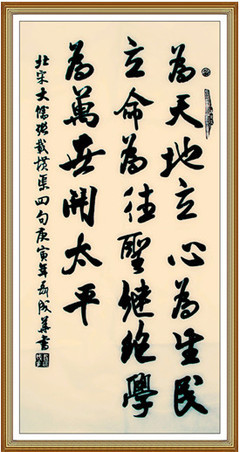 為天地立心為生民
立命為往聖継絶學
為萬世開太平
北宋大儒張載橫渠四句庚寅年聶成華書